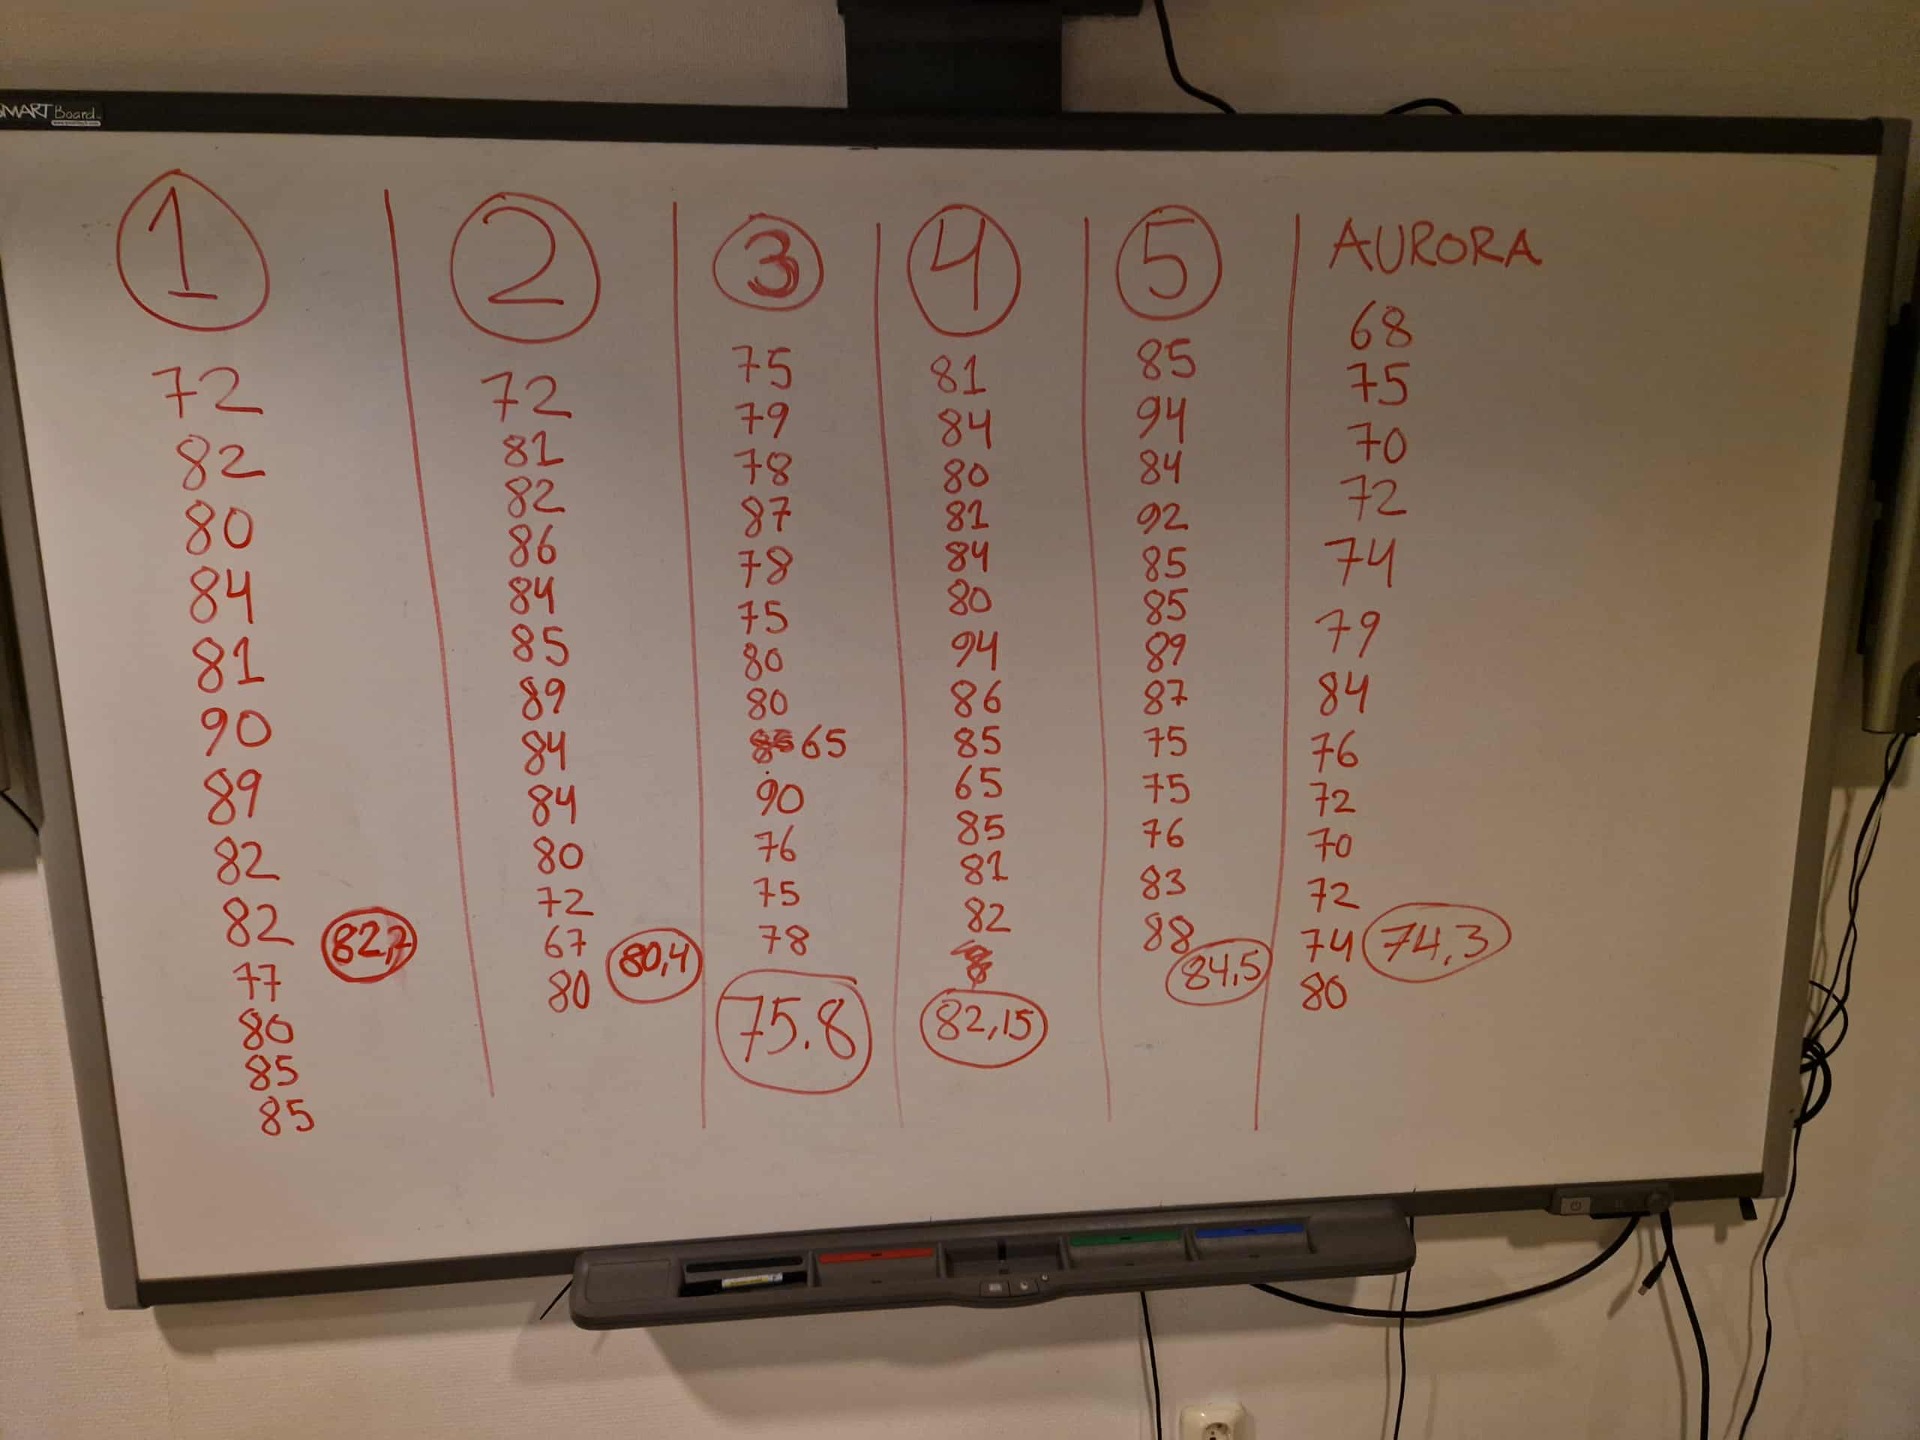 SMART Board
1
72
82
80
84
81
90
89
82
82
77
80
85
85
82,7
2
72
81
82
86
84
85
89
84
84
80
72
67
80
80,4
3
75
79
78
87
78
75
80
80
65
90
76
75
78
75.8
4
81
84
80
81
84
80
94
86
85
65
85
81
82
82,15
5
85
94
84
92
85
85
89
87
75
75
76
83
88
84,5
AURORA
68
75
70
72
74
79
84
76
72
70
72
74
80
74,3